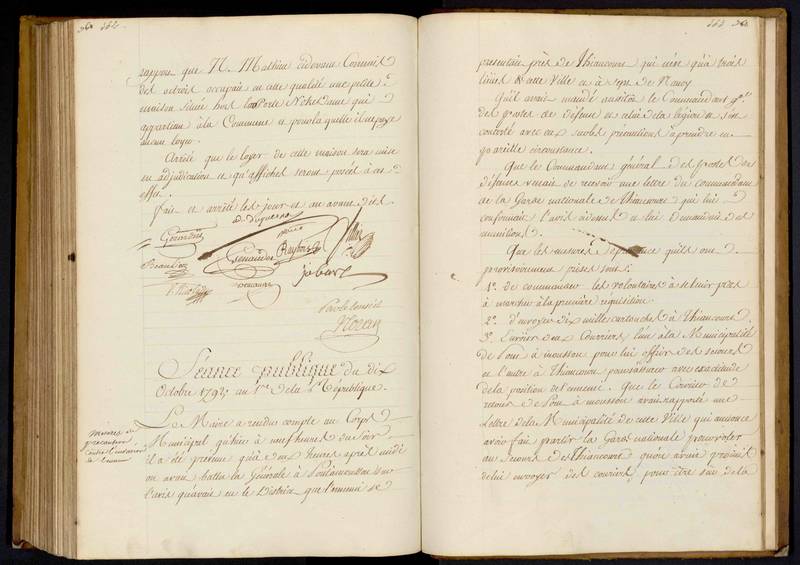 rapport que N. Mathieu cidevant Commis
des octrois occupait en cette qualité une petite
maison située hors la Porte Notre Dame qui
appartient à la Commune et pour laquelle il ne paye
aucun loyer.
Arrête que le loyer de cette maison sera mise
en adjudication et qu'affiches seront posées à cet
effet.
fait et arrêté les jour et an avant dits.
Duquesnoy
Gérardin
Jobart
Par le Conseil
Séance publique du dix
Octobre 1792 an 1er de la République.
mesures de
précaution
contre l'invasion
de l'ennemi
Le Maire a rendu compte au Corps
Municipal qu'hier à neuf heures du soir
il a été prévenu qu'à deux heures après midi
on avait battu la Générale à Pontamousson sur
l'avis qu'avait eu le District que l'ennemi se
présentait près de Thiaucourt qui n'est qu'à trois
lieues de cette Ville et à sept de Nancy
Qu'il avait mandé aussitôt le Commandant gal
des postes de défense et celui de la légion et s'est
concerté avec eux sur les précautions à prendre en
pareille circonstance.
Que le Commandant général des postes de
défense venait de recevoir une lettre du commandant
de la Garde nationale de Thiaucourt qui lui
confirmait l'avis ci dessus et lui demandait des
munitions.
Que les mesures de prudence qu'ils ont
provisoirement prises sont:
1º. de commander les volontaires à se tenir prêts
à marcher à la première réquisition.
2º. d'envoyer dix mille cartouches à Thiaucourt.
3º. Envoyer deux Courriers l'un à la Municipalité
de Pont à mousson pour lui offrir des secours
et l'autre à Thiaucourt pour s'assurer avec exactitude
de la position de l'ennemi. Que le Courrier de
retour de Pont à mousson avait rapporté une
Lettre de la Municipalité de cette Ville qui annonce
avoir fait partir la Garde nationale pour voler
au secours de Thiaucourt qu'on avait promis
de lui envoyer des courriers pour être sur de la